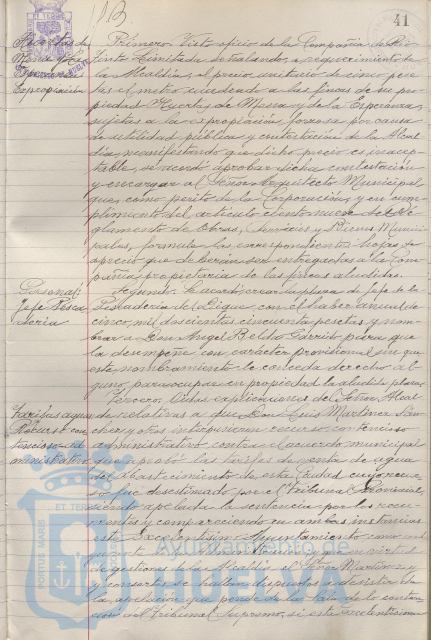 41
Huertas de
Mena y la
Esperanza
Expropiación
Primero. Visto oficio de la Compañía de Rio
Tinto Limitada señalando, a requerimiento de
la Alcaldía, el precio unitario de cinco pese
tas el metro cuadrado a las fincas de su pro
piedad Huertas de Mena y de la Esperanza,
sujetas a la expropiación forzosa por causa
de utilidad pública y contestación de la Alcal
día, manifestando que dicho precio es inacep
table, se acordó aprobar dicha contestación
y encargar al Señor Arquitecto Municipal,
que, como perito de la Corporación, y en cum
plimiento del artículo ciento nueve del Re
glamento de Obras, Servicios y Bienes Munici
pales, formule las correspondientes hojas de
aprecio que deberán ser entregadas a la Com
pañía propietaria de las fincas aludidas.
Personal:
Jefe Pesca
dería
Segundo. Se acordó crear la plaza de Jefe de la
Pescadería del Dique, con el haber anual de
cinco mil doscientas cincuenta pesetas y nom
brar a Don Angel Bello Garrido para que
la desempeñe con carácter provisional sin que
este nombramiento le conceda derecho al
guno para ocupar en propiedad la aludida plaza.
Tarifas agua
Recurso con
tencioso-ad
ministrativo
Tercero. Oidas explicaciones del Señor Alcal
de relativas a que Don Luis Martinez Sán
chez y otros interpusieron recurso contencioso
administrativo contra el acuerdo municipal
que aprobó las tarifas de venta de agua
del abastecimiento de esta Ciudad cuyo recur
so fue desestimado por el Tribunal Provincial,
siendo apelada la sentencia por los recu
rrentes y compareciendo en ambas instancias
este Excelentísimo Ayuntamiento como
y en virtud
de gestiones de la Alcaldía el Señor Martinez y
consortes se hallan dispuestos a desistir de
la apelación que pende de la Sala de lo conten
cioso del Tribunal Supremo, si este Excelentísimo
PORTUS MARIS ET TERRAE
Ayuntamiento de